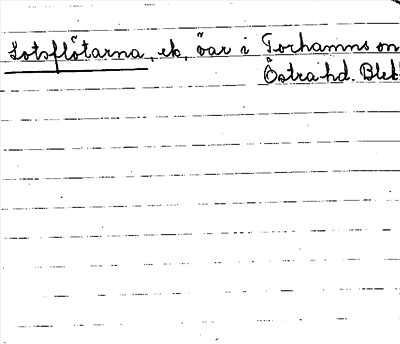 Lotsflötarna, ek. öar i Torhamns
Östra hd. Blek